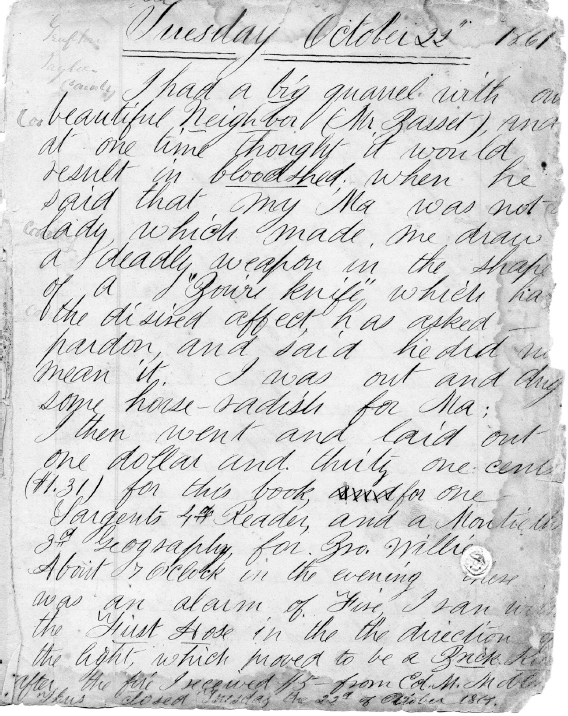 Tuesday October 22" 1861
I had a big quarrel with
beautiful Neighbor (Mr Basset), and
at one time thought it would
result in bloodshed, when he
said that my Ma was not
Lady, which made me draw
a deadly weapon in the shape
of a "Bowie knife", which had
the disired affect, has asked
pardon, and said he did
mean it. I was out and dug
some horse-radish for Ma;
I then went and laid out
one dollar and thirty one cents
($1.31) for this book, for one
Sargents 4th Reader, and a
3d Geography, for Bro. Willie
About 7 O'Clock in the evening there
was an alarm of Fire, I ran with
the First Hose in the the direction
the light, which proved to be a Brick
after the fire I received $5 from Col. M.
closed Tuesday the 22d of October 1861.
Grafton
Taylor
County